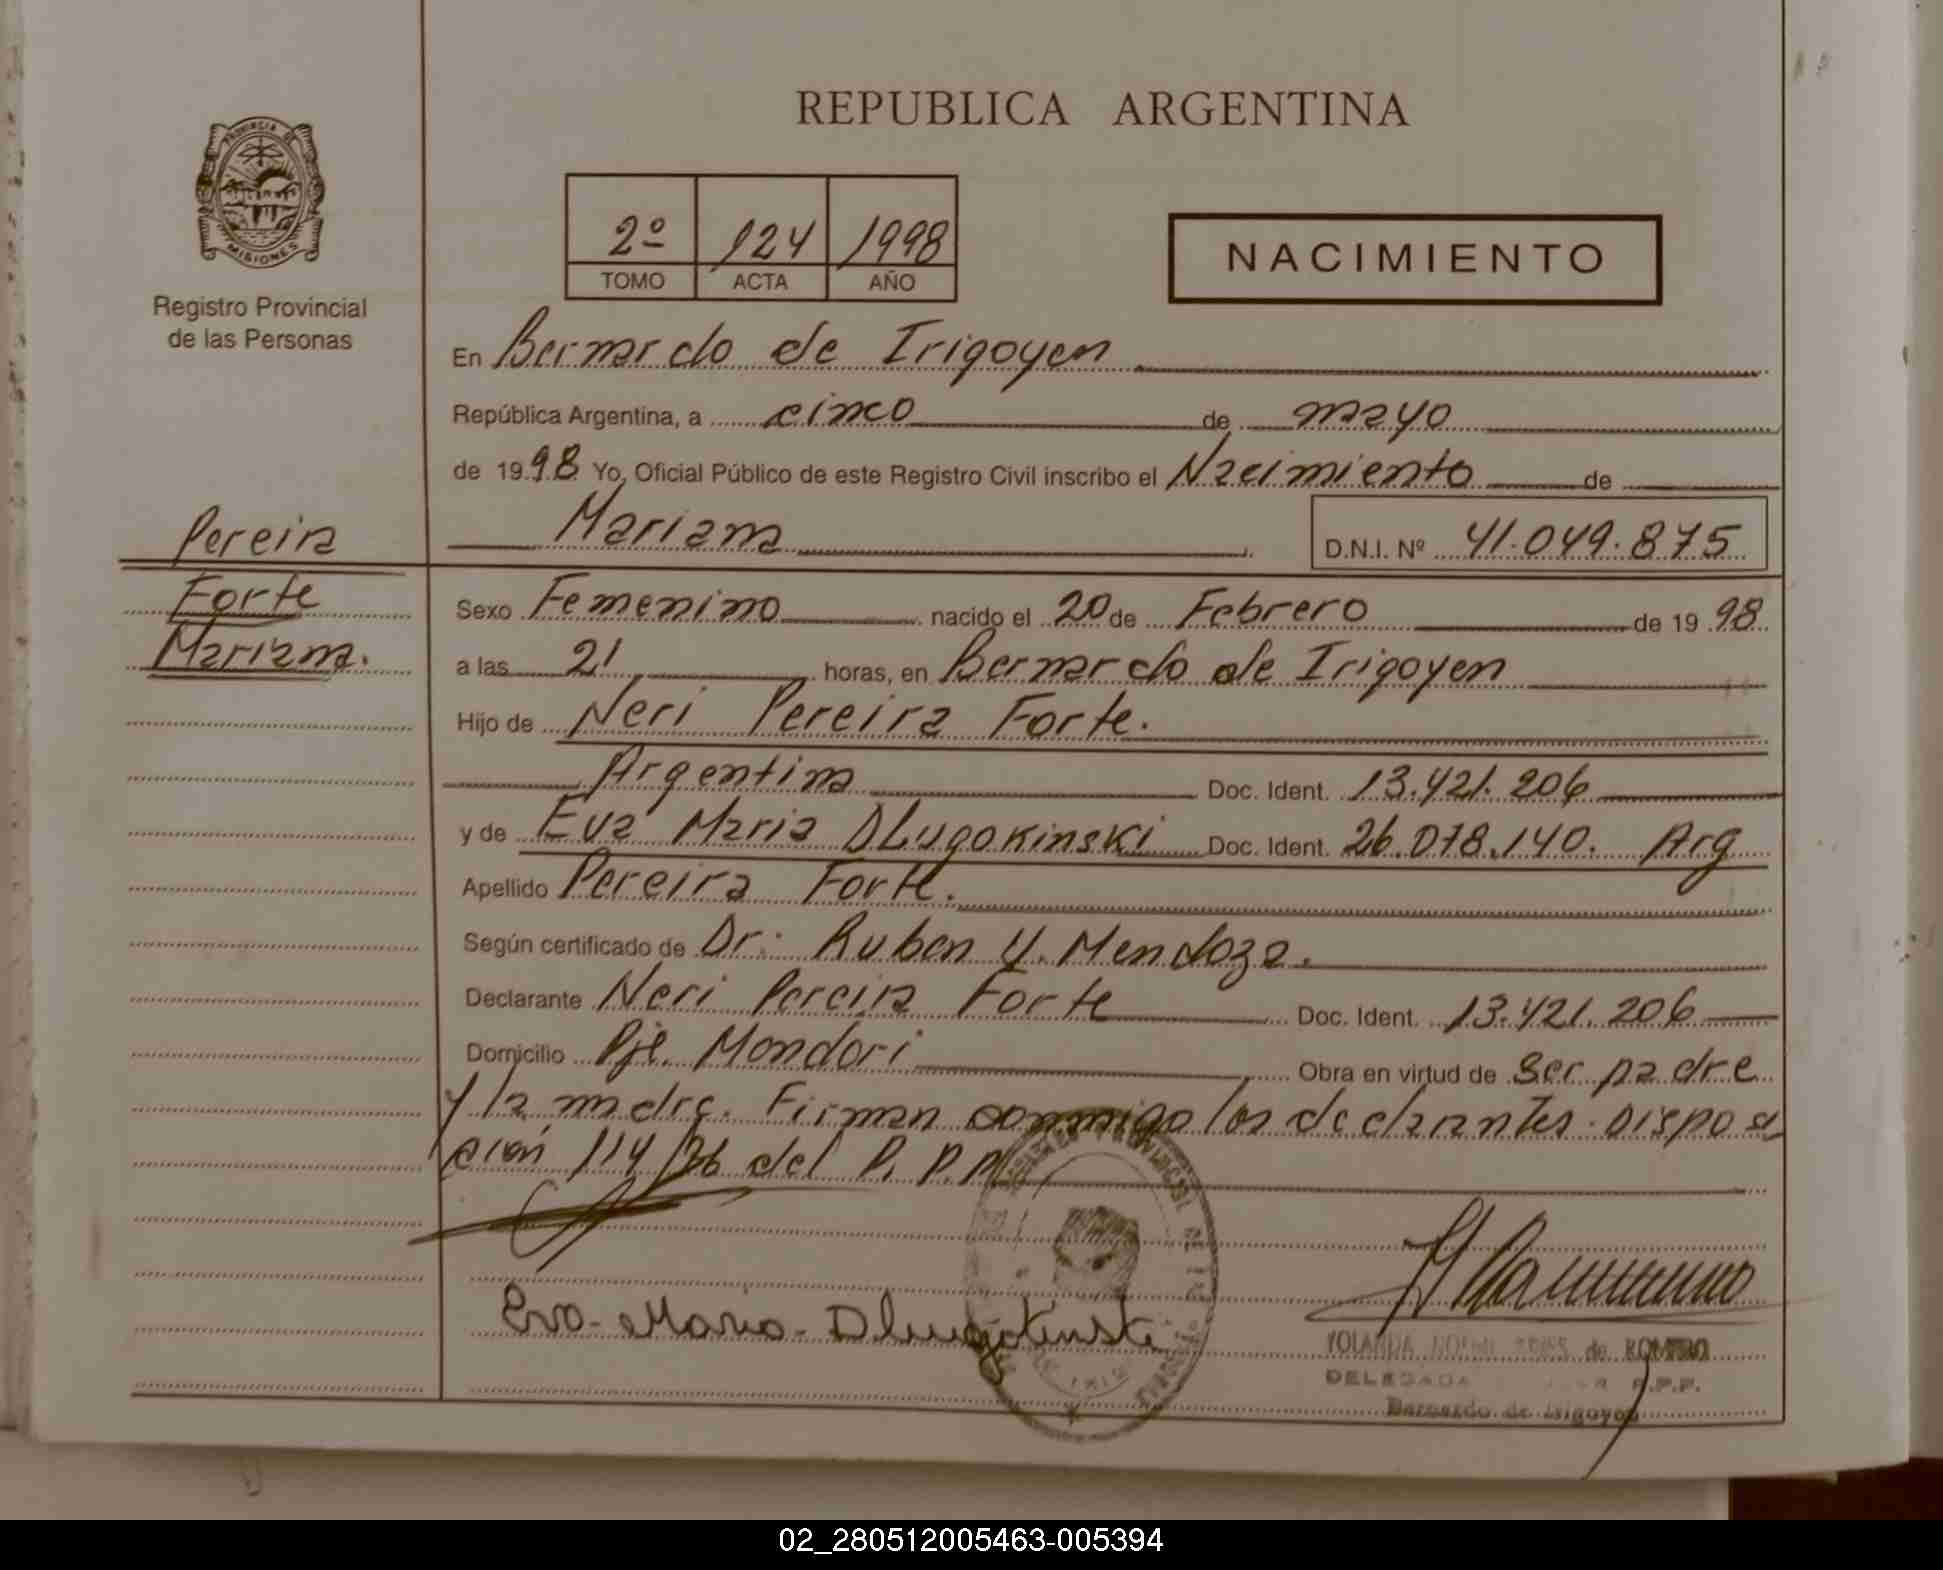 REPUBLICA ARGENTINA
PROVINCIA DE
MISIONES
Registro Provincial
de las Personas
2º 124 1998
TOMO ACTA AÑO
NACIMIENTO
En Bernardo de Irigoyen
República Argentina, a cinco de mayo
de 1998 Yo, Oficial Público de este Registro Civil inscribo el Nacimiento de
Mariana D.N.I. Nº 41.049.875
Pereira
Forte
Mariana.
Sexo Femenino nacido el 20 de Febrero de 1998
a las 21 horas, en Bernardo de Irigoyen
Hijo de Neri Pereira Forte.
Argentina Doc. Ident. 13.421.206
y de Eva Maria DLugokinski Doc. Ident. 26.078.140. Arg
Apellido Pereira Forte.
Según certificado de Dr: Ruben U. Mendoza.
Declarante Neri Pereira Forte Doc. Ident. 13.421.206
Domicilio Pje. Mondori Obra en virtud de ser padre
y la madre. Firman conmigo los declarantes. Disposi
ción 114/96 del R.P.P.
Eva - Maria - Dlugokinski
YOLANDA de ROMERO
DELEGADA R.P.P.
Bernardo de Irigoyen
02_280512005463-005394